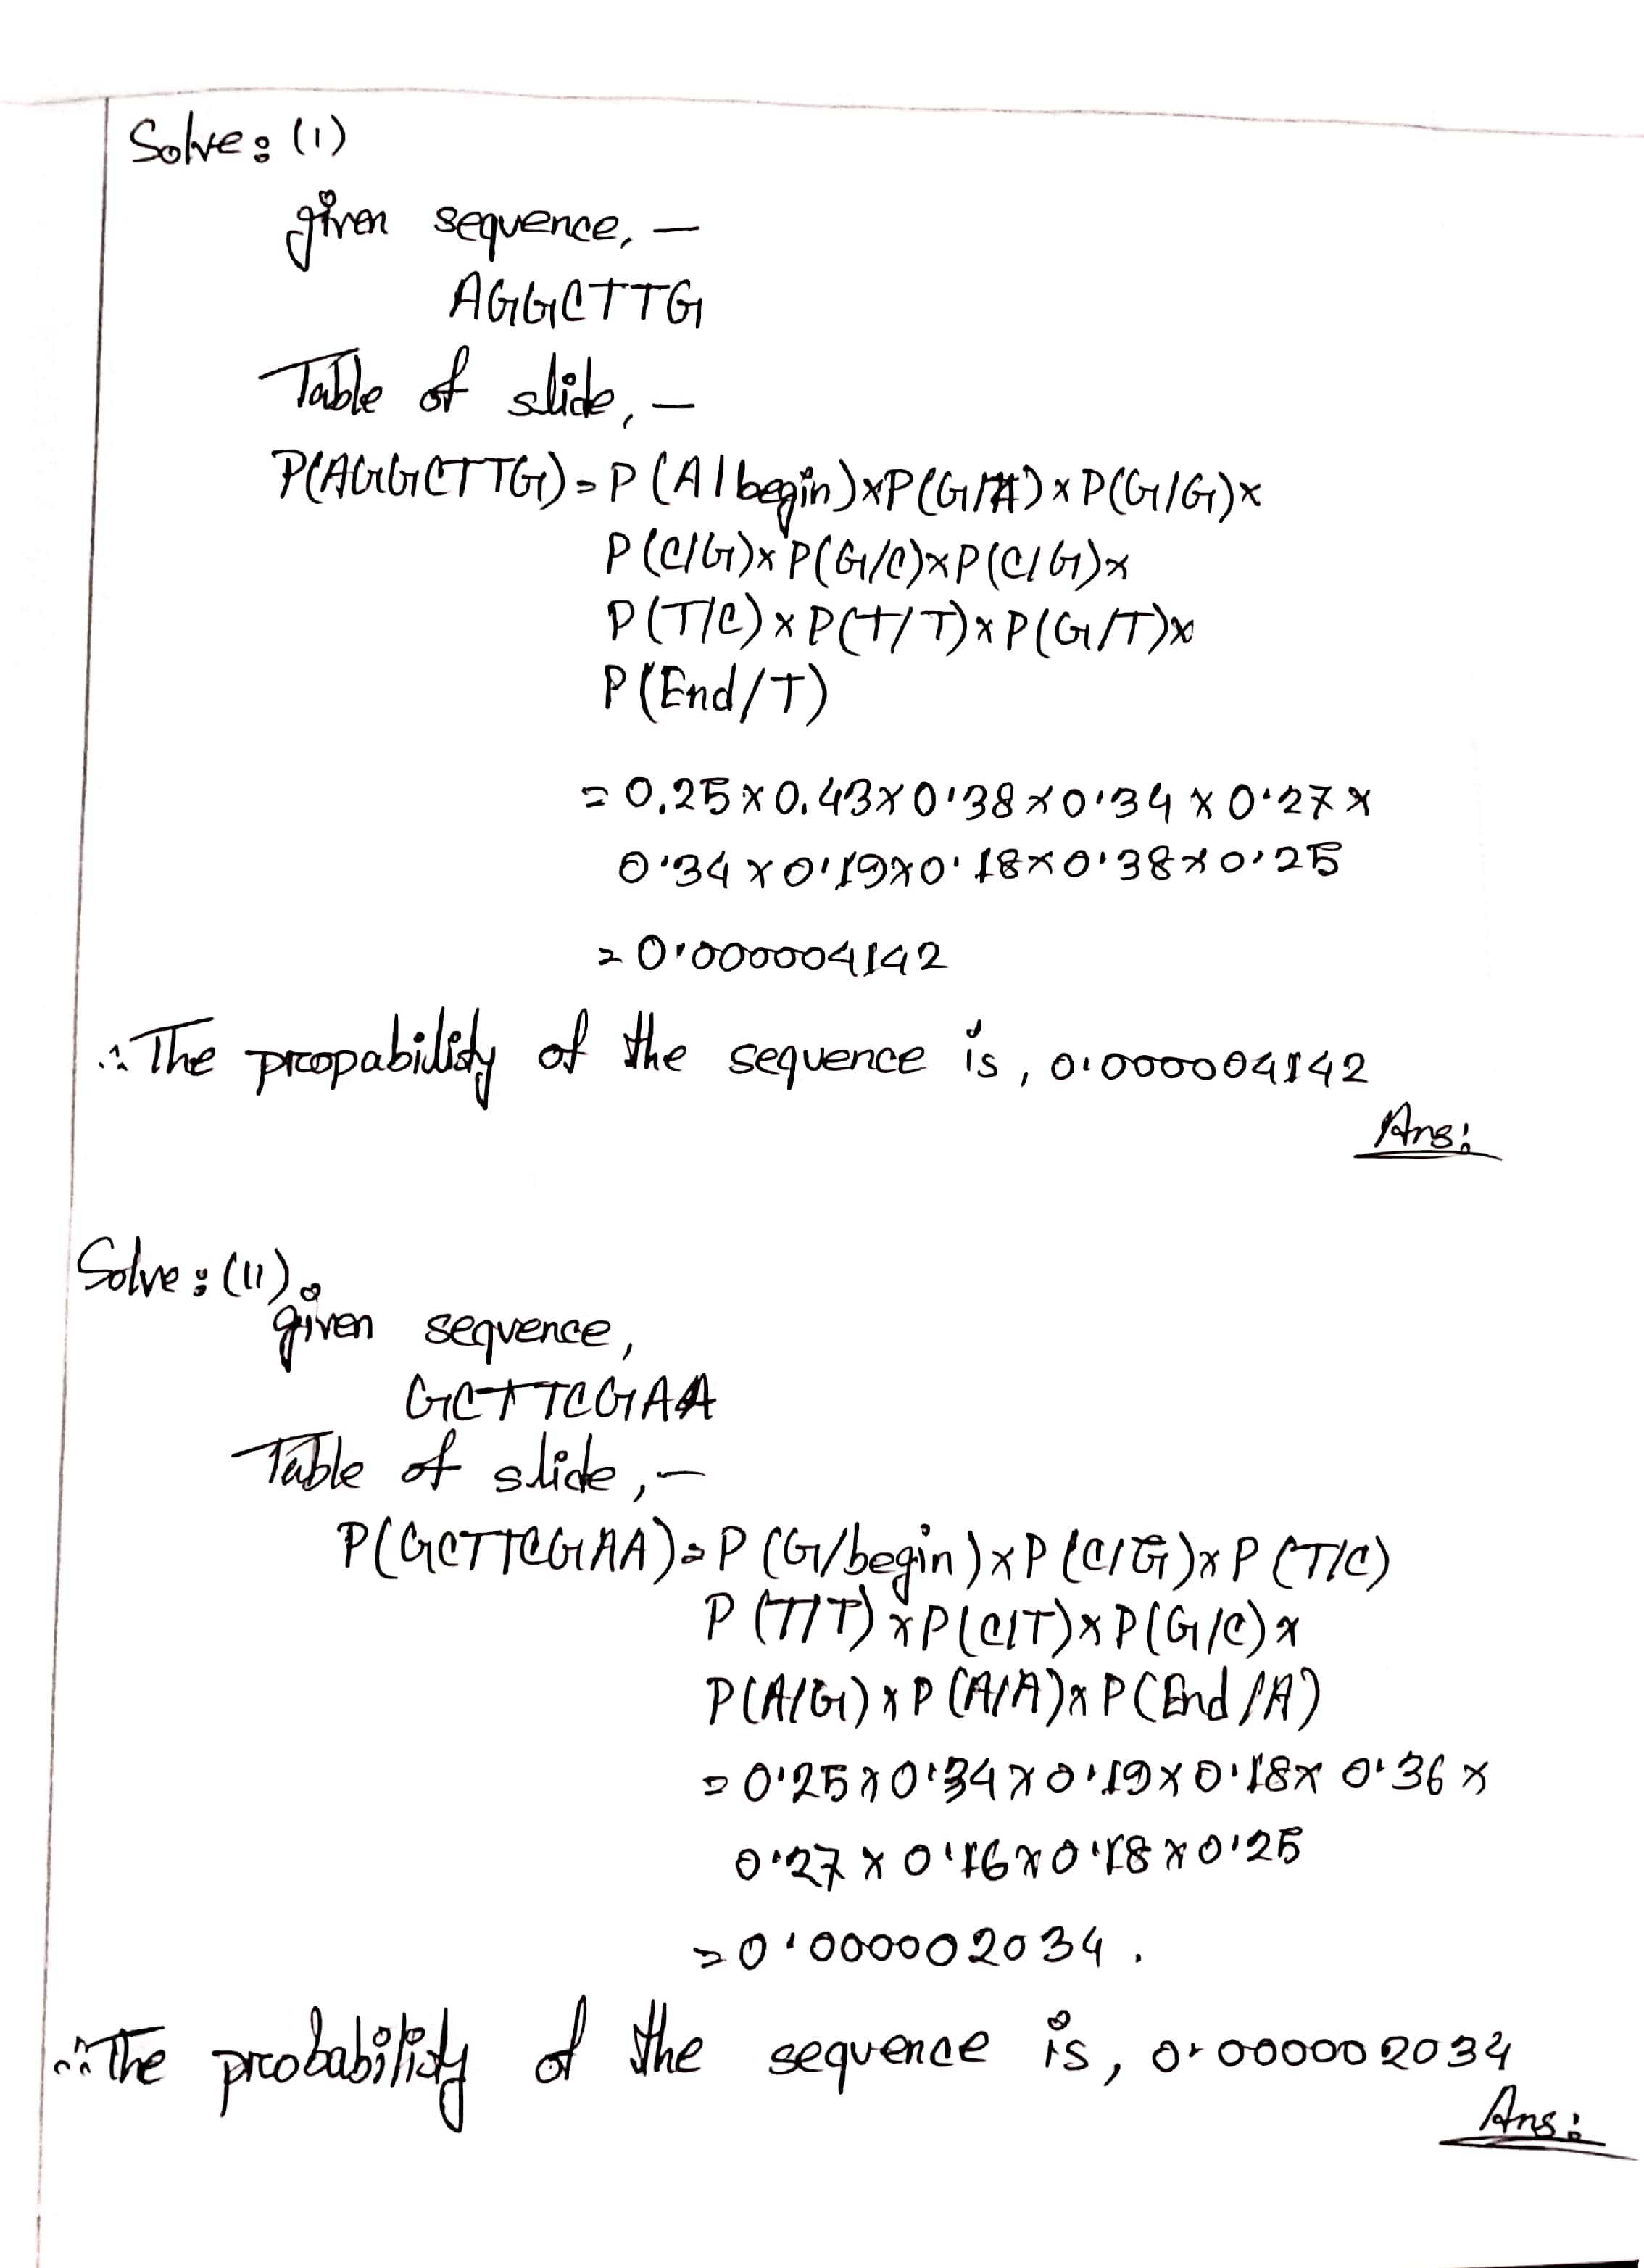 Solve: (1)
given sequence, –
AGGCTTG
Table of slide, –
P(AGGCTTG) = P(A|begin)×P(G/A)×P(G/G)×
P(C/G)×P(G/C)×P(C/G)×
P(T/C)×P(T/T)×P(G/T)×
P(End/T)
= 0.25×0.43×0.38×0.34×0.27×
0.34×0.19×0.18×0.38×0.25
= 0.000004142
∴ The propability of the sequence is, 0.000004142
Ans:
Solve: (11).
given sequence,
GCTTCGAA
Table of slide, –
P(GCTTCGAA) = P(G/begin)×P(C/G)×P(T/C)
P(T/T)×P(C/T)×P(G/C)×
P(A/G)×P(A/A)×P(End/A)
= 0.25×0.34×0.19×0.18×0.36×
0.27×0.16×0.18×0.25
= 0.000002034.
∴ The probability of the sequence is, 0.000002034
Ans: